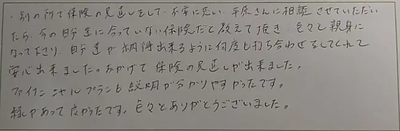 ・別の所で保険の見直しをして、不安に思い 平尾さんに相談させていただい
たら、今の時主に合っていない保険だと教えて頂き 色々と親身に
なって下さり、時主が納得出来るように何度も打ち合わせをしてくれて
安心出来ました。おかげで保険の見直しが出来ました。
ファイナンシャルプランも説明が分かりやすかったです。
縁があって良かったです。色々とありがとうございました。